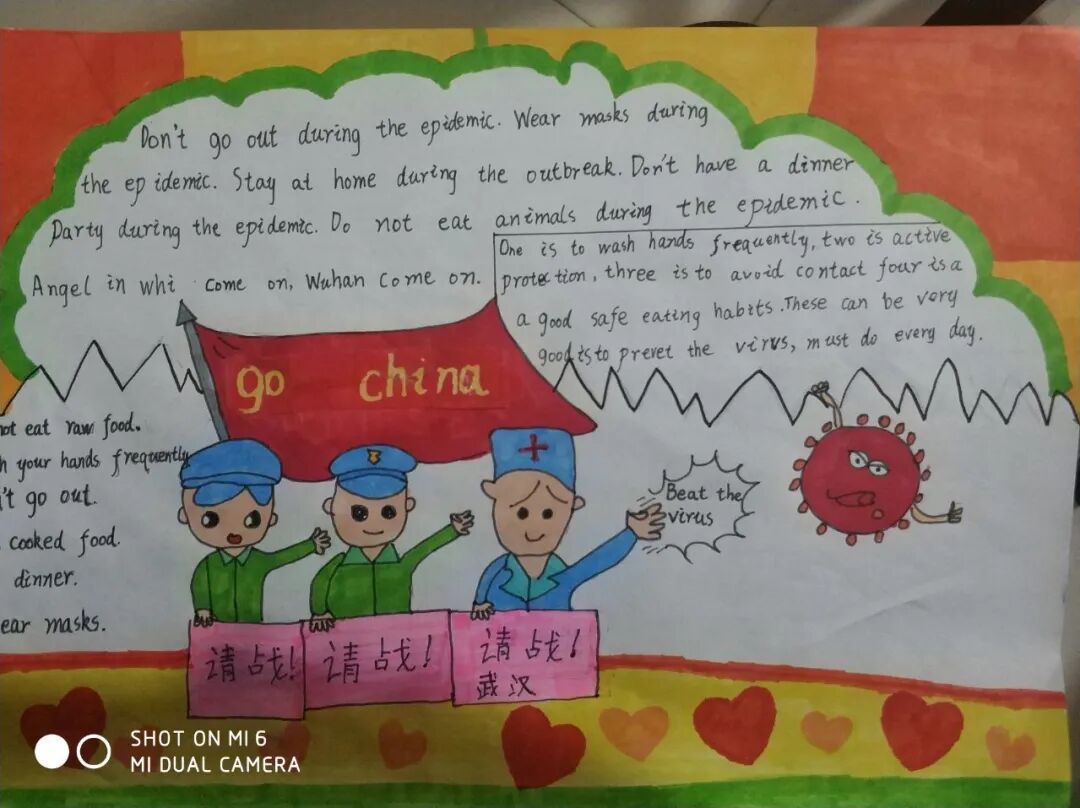 Don't go out during the epidemic. Wear masks during
the epidemic. Stay at home during the outbreak. Don't have a dinner
Party during the epidemic. Do not eat animals during the epidemic.
Angel in whi come on, Wuhan come on.
One is to wash hands frequently, two is active
protection, three is to avoid contact four is a
a good safe eating habits. These can be very
good is to prevet the virus, must do every day.
go china
not eat raw food.
h your hands frequently
't go out.
cooked food.
dinner.
ear masks.
Beat the
virus
请战!
请战!
请战!
武汉
SHOT ON MI 6
MI DUAL CAMERA